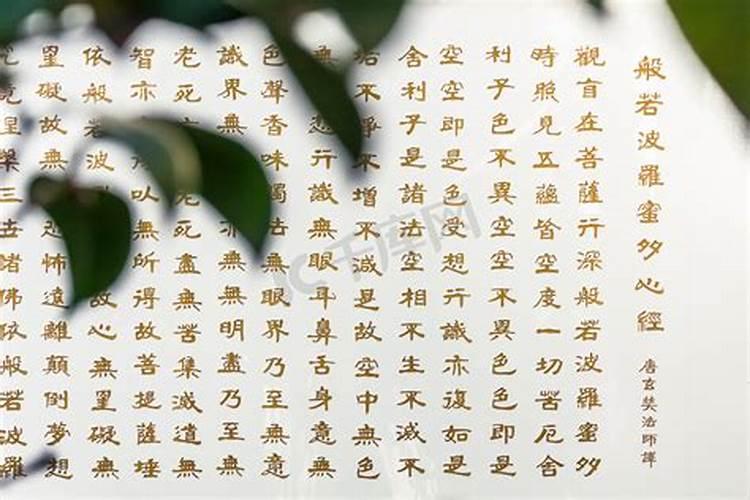 般若波羅蜜多心經
唐玄奘法師譯
觀自在菩薩行深般若波羅蜜多
時照見五蘊皆空度一切苦厄舍
利子色不異空空不異色色即是
空空即是色受想行識亦復如是
舍利子是諸法空相不生不滅不
垢不淨不增不減是故空中無色
無想行識無眼耳鼻舌身意無
色聲香味觸法無眼界乃至無意
識界無亦無無明盡乃至無
老死亦無死盡無苦集滅道無
智亦以無所得故菩提薩埵
依般若波故心無罣礙無
罣礙故無怖遠離顛倒夢想
竟涅槃三世諸佛依般若波羅
千库网